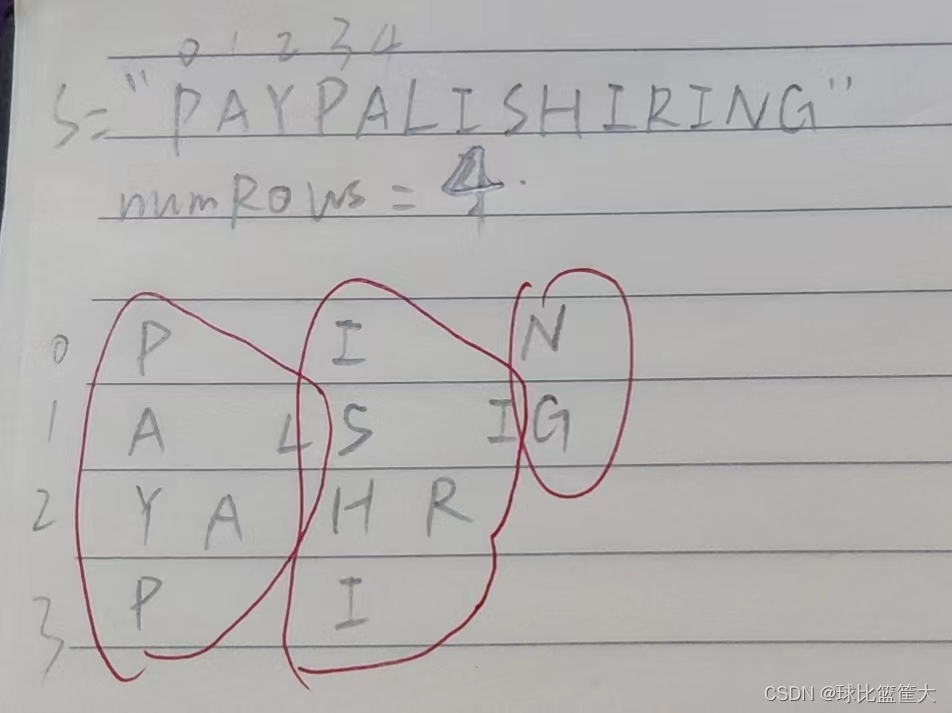 0 1 2 3 4
S="PAYPALISHIRING"
numRows = 4.
0 P I N
1 A L S I G
2 Y A H R
3 P I
CSDN @球比篮筐大